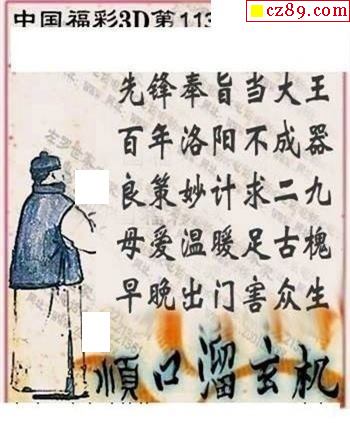 cz89.com
中国福彩3D第113
先锋奉旨当大王
百年洛阳不成器
良策妙计求二九
母爱温暖足古槐
早晚出门害众生
順口溜玄机